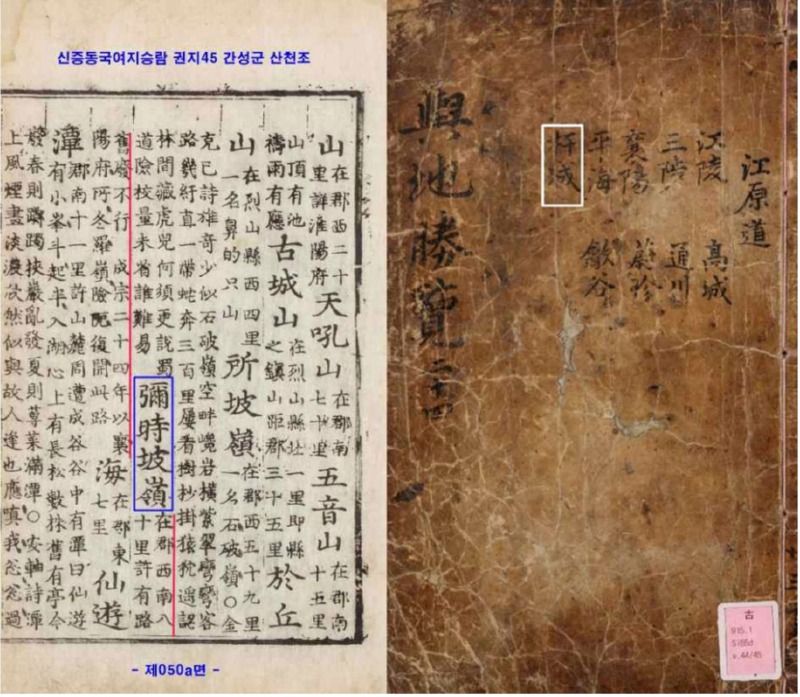 신증동국여지승람 권지45 간성군 산천조
山 在郡西二十里詳淮陽府 天吼山 在郡南七十里 五音山 在郡南十五里
山頂有池禱雨有應 古城山 在烈山縣北一里即縣之鎮山距郡三十五里 於丘
山 在烈山縣西四里一名鼻的只山 所坡嶺 在郡西五十九里一名石破嶺○金
克己詩雄奇少似石破嶺空畔巉岩橫紫翠彎彎客路幾紆直一帶蛇奔三百里屢看樹抄掛猿狖遙認
林間藏虎兕何須更說蜀道險校量未省誰難易 彌時坡嶺 在郡西南八十里許有路
舊廢不行 成宗二十四年以襄陽府所冬羅嶺險阨復開此路 海 在郡東七里 仙遊
潭 在郡南十一里許山麓周遭成谷谷中有潭曰仙遊有小峯斗起半入湖心上有長松數株舊有亭今
廢春則躑躅挾巖亂發夏則蓴菜滿潭○安軸詩潭上風煙盡淡濃欣然似與故人逢也應嗔我怱怱過
- 제050a면 -
江原道
江陵 高城
三陟 通川
襄陽 蔚珍
平海 歙谷
杆城
輿地勝覽 二十四
古
915.1
Si65d
v.44/45